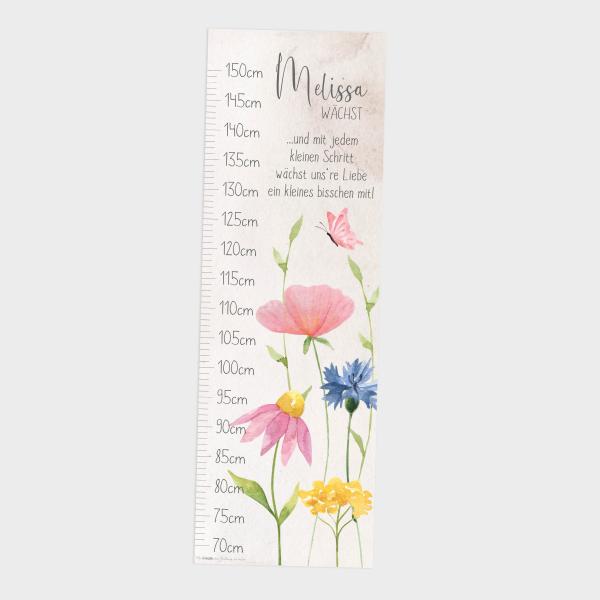 Melissa
WÄCHST
...und mit jedem
kleinen Schritt
wächst uns're Liebe
ein kleines bisschen mit!
150cm
145cm
140cm
135cm
130cm
125cm
120cm
115cm
110cm
105cm
100cm
95cm
90cm
85cm
80cm
75cm
70cm